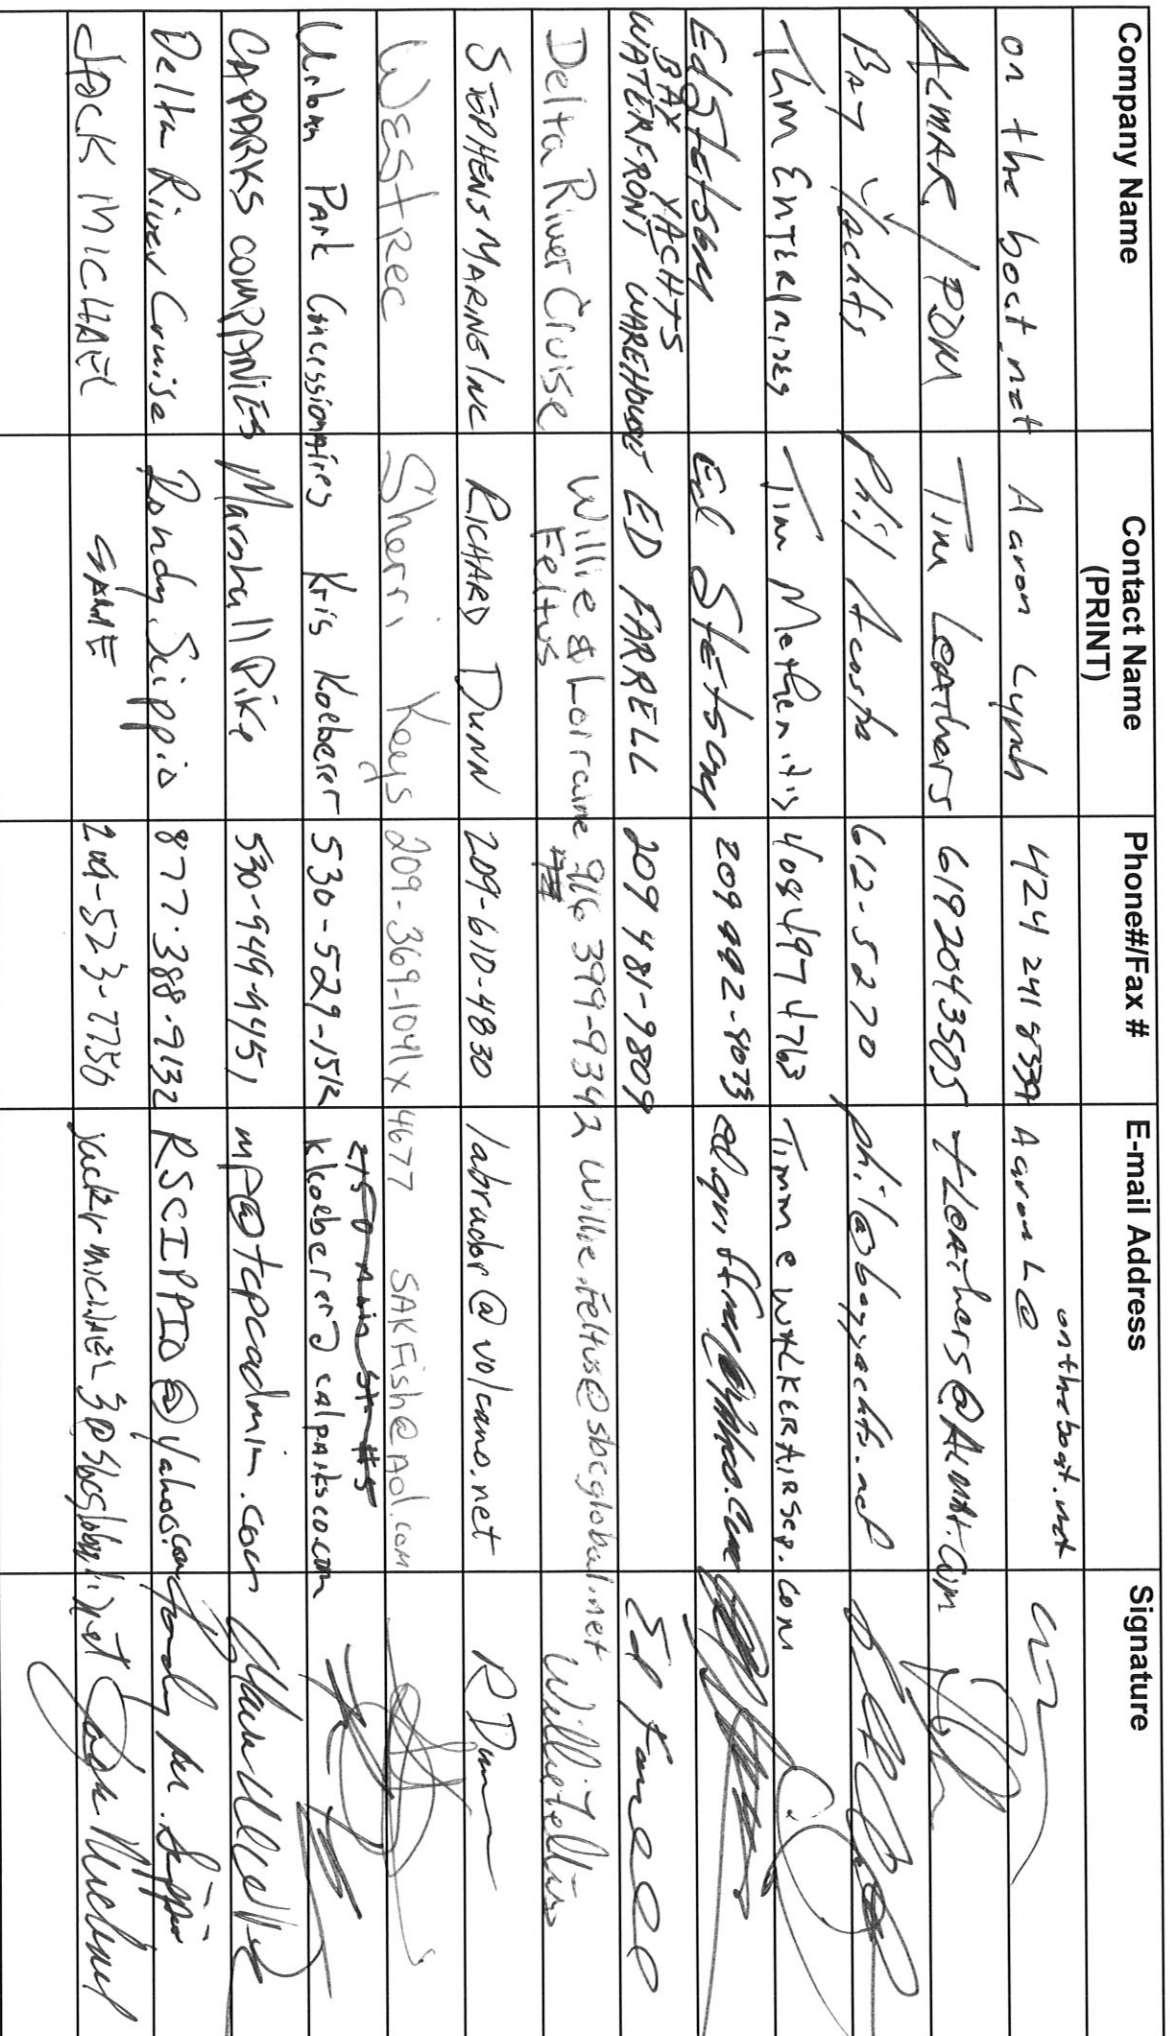 Company Name Contact Name (PRINT) Phone#/Fax # E-mail Address Signature
on the boat.net Aaron Lynch 424 241 8339 AaronL@ontheboat.net
ACMAR / PDM Tim Leathers 6192043505 tLeathers@
BAy Yachts Phil Acosta 612-5270 phil@bayyachts.net
Tim Enterprizes Tim 408 497 4763
Ed Stetson Ed Stetson 209 992-8073
BAY YACHTS
WATERFRONT WAREHOUSE ED FARRELL 209 481-9809 Ed Farrell
Delta River Cruise Willie & Lorraine Feltus 916 399-9342 Willie.Feltus@sbcglobal.net Willie Feltus
STEPHENS MARINE INC RICHARD DUNN 209-610-4830 labrador@volcano.net R Dunn
Westrec Sherri Keys 209-369-1041 x 4677 SAKFish@Aol.com
Urban Park Concessionaires Kris Koeberer 530-529-1512 kkoeberer@calparksco.com
CAPARKS COMPANIES Marshall Pike 530-949-4451 mp@tcpcadmin.com
Delta River Cruise Randy Scippio 877-388-9132 RSCIPPIO@yahoo.com
JACK MICHAEL SAME 209-523-7756 Jack Michael